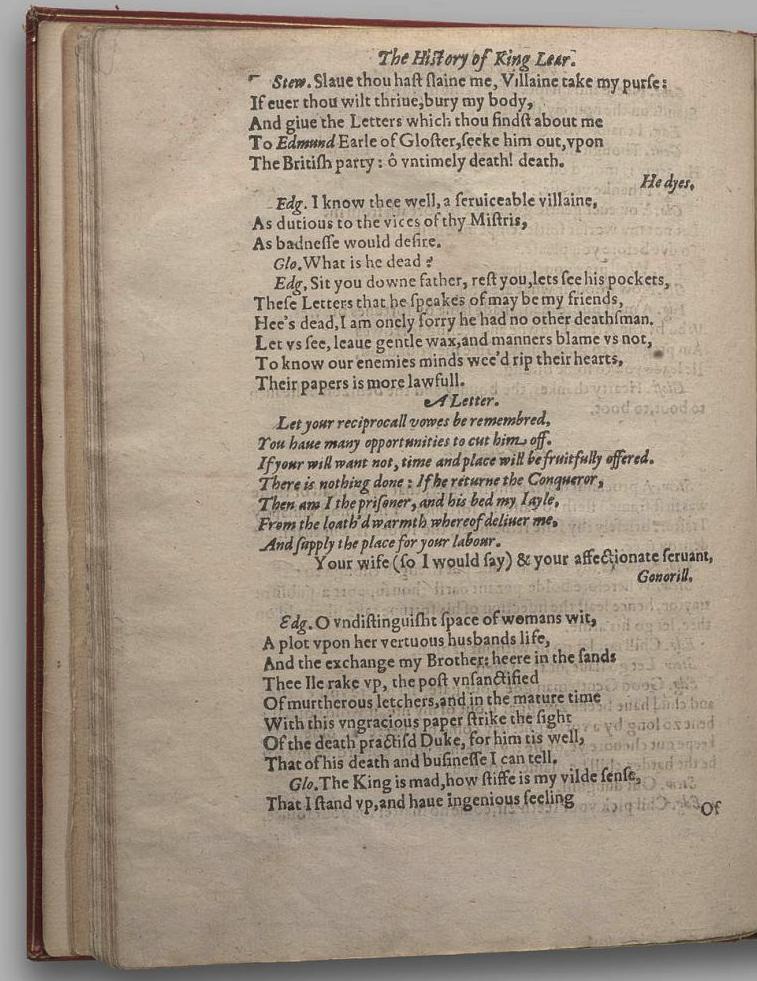 The History of King Lear.
Stew. Slaue thou hast slaine me, Villaine take my purse:
If euer thou wilt thriue, bury my body,
And giue the Letters which thou findst about me
To Edmund Earle of Gloster, seeke him out, vpon
The British party: ô vntimely death! death.
He dyes.
Edg. I know thee well, a seruiceable villaine,
As dutious to the vices of thy Mistris,
As badnesse would desire.
Glo. What is he dead?
Edg, Sit you downe father, rest you, lets see his pockets,
These Letters that he speakes of may be my friends,
Hee's dead, I am onely sorry he had no other deathsman.
Let vs see, leaue gentle wax, and manners blame vs not,
To know our enemies minds wee'd rip their hearts,
Their papers is more lawfull.
A Letter.
Let your reciprocall vowes be remembred,
You haue many opportunities to cut him off.
If your will want not, time and place will be fruitfully offered.
There is nothing done: If he returne the Conqueror,
Then am I the prisoner, and his bed my Iayle,
From the loath'd warmth whereof deliuer me,
And supply the place for your labour.
Your wife (so I would say) & your affectionate seruant,
Gonorill.
Edg. O vndistinguisht space of womans wit,
A plot vpon her vertuous husbands life,
And the exchange my Brother: heere in the sands
Thee Ile rake vp, the post vnsanctified
Of murtherous letchers, and in the mature time
With this vngracious paper strike the sight
Of the death practisd Duke, for him tis well,
That of his death and businesse I can tell.
Glo. The King is mad, how stiffe is my vilde sense,
That I stand vp, and haue ingenious feeling
Of